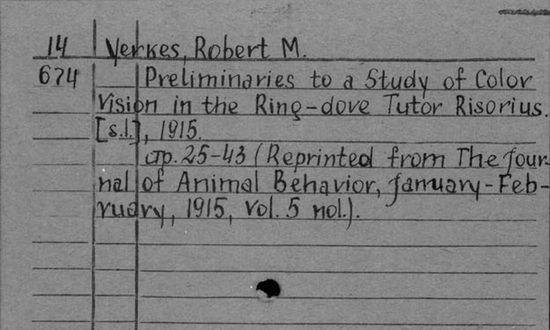 14 Yerkes, Robert M.
674 Preliminaries to a Study of Color
Vision in the Ring-dove Tutor Risorius.
[s.l.], 1915.
pp. 25-43 (Reprinted from The Jour-
nal of Animal Behavior, January-Feb-
ruary, 1915, Vol. 5 no1.).